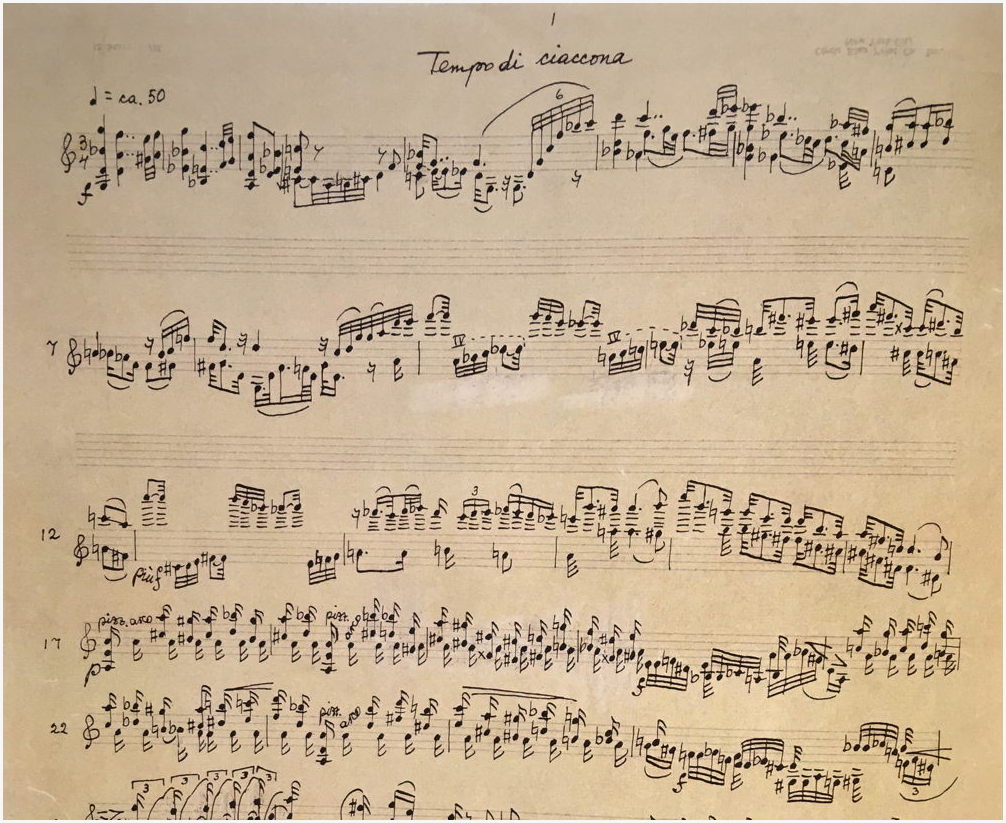 1
Tempo di ciaccona
♩ = ca. 50
6
3
4
f
7
IV
IV
12
3
più f
17
pizz. arco
pizz.
arco
p
f
22
pizz. arco
f
3
3 3 3 3 3